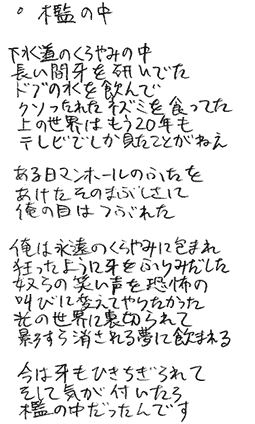 。檻の中
下水道のくらやみの中
長い間牙を研いでた
ドブの水を飲んで
クソったれたネズミを食ってた
上の世界はもう20年も
テレビでしか見たことがねえ
ある日マンホールのふたを
あけたそのまぶしさに
俺の目はつぶれた
俺は永遠のくらやみに包まれ
狂ったように牙をふりみだした
奴らの笑い声を恐怖の
叫びに変えてやりたかった
光の世界に裏切られて
影すら消される夢に飲まれる
今は牙もひきちぎられて
そして気が付いたら
檻の中だったんです